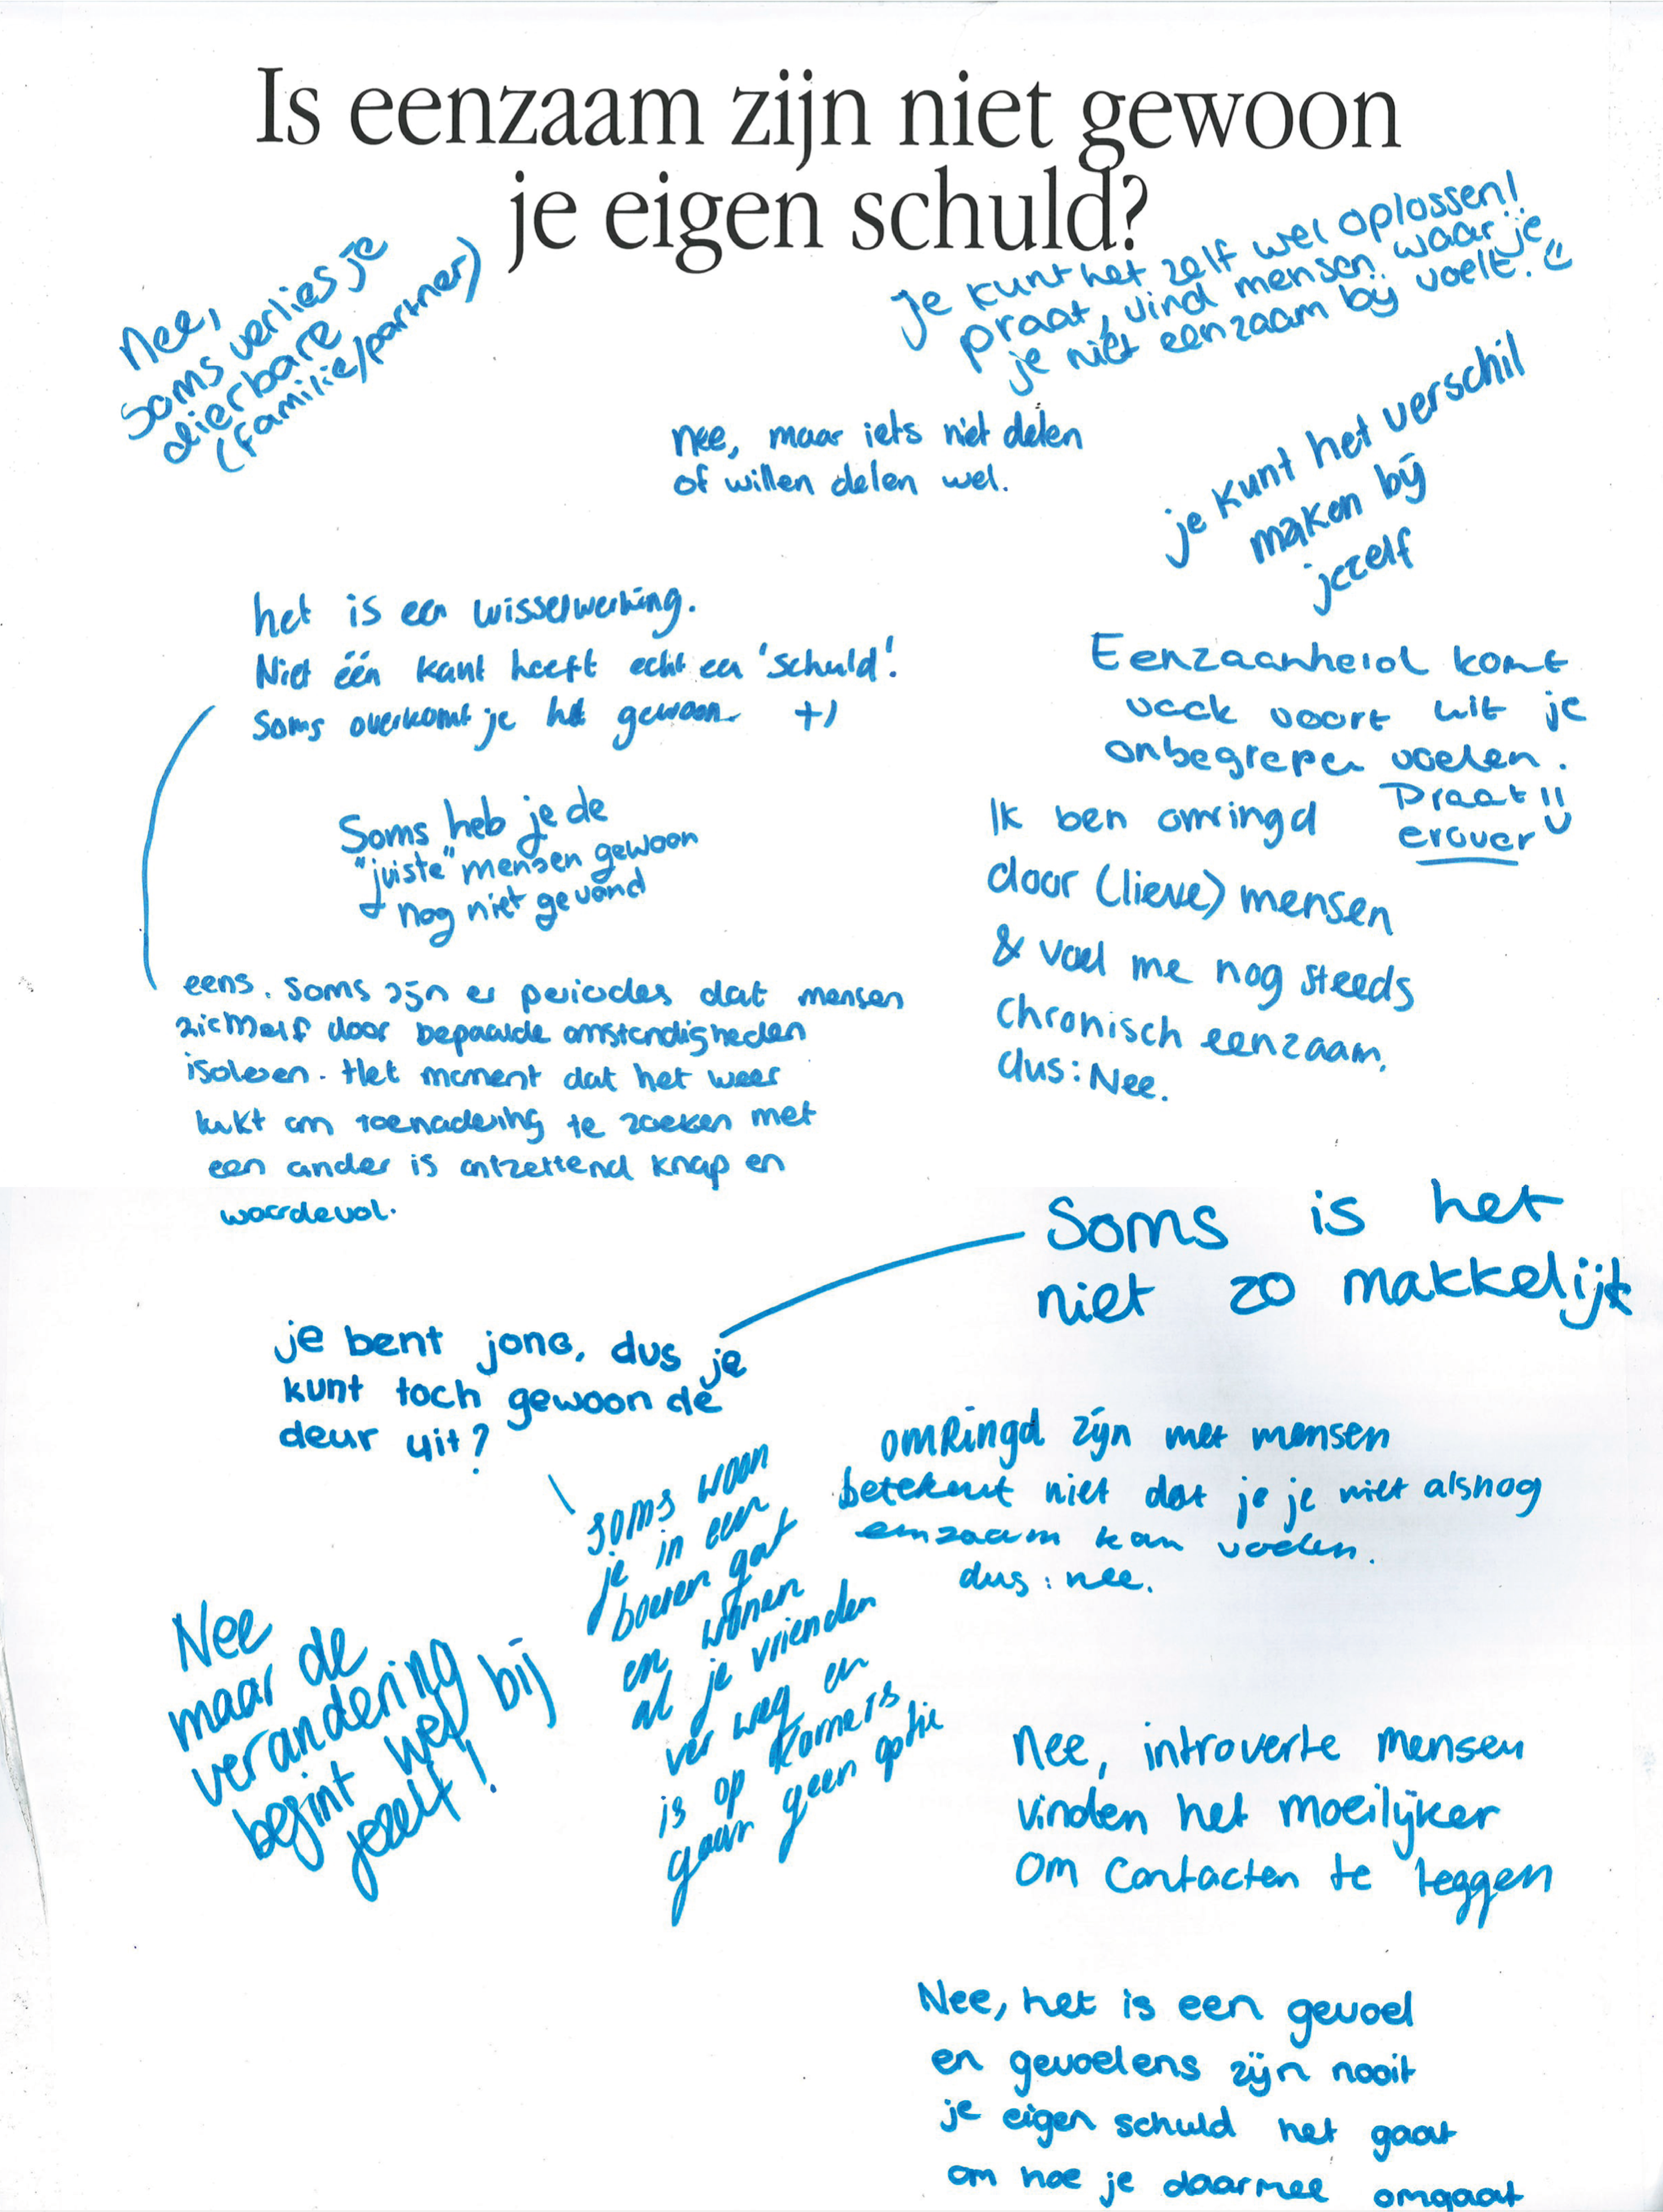 Is eenzaam zijn niet gewoon
je eigen schuld?
Nee,
soms verlies je
dierbare
(familie/partner)
Je kunt het zelf wel oplossen!
praat, vind mensen waar je
je niet eenzaam bij voelt.
nee, maar iets niet delen
of willen delen wel.
je kunt het verschil
maken bij
jezelf
het is een wisselwerking.
Niet één kant heeft echt een 'schuld'.
Soms overkomt je het gewoon
Eenzaamheid komt
vaak voort uit je
onbegrepen voelen.
Praat!!
erover
Soms heb je de
"juiste" mensen gewoon
nog niet gevond
Ik ben omringd
door (lieve) mensen
& voel me nog steeds
chronisch eenzaam.
dus: Nee.
eens. Soms zijn er periodes dat mensen
zichzelf door bepaalde omstandigheden
isoleren. Het moment dat het weer
lukt om toenadering te zoeken met
een ander is ontzettend knap en
waardevol.
Soms is het
niet zo makkelijk
je bent jong, dus je
kunt toch gewoon de
deur uit?
soms woon
je in een
boeren gat
en wonen
al je vrienden
ver weg en
is op kamers
gaan geen optie
omringd zijn met mensen
betekent niet dat je je niet alsnog
eenzaam kan voelen.
dus: nee.
Nee
maar de
verandering
begint wel bij
jezelf!
Nee, introverte mensen
vinden het moeilijker
om contacten te leggen
Nee, het is een gevoel
en gevoelens zijn nooit
je eigen schuld het gaat
om hoe je daarmee omgaat